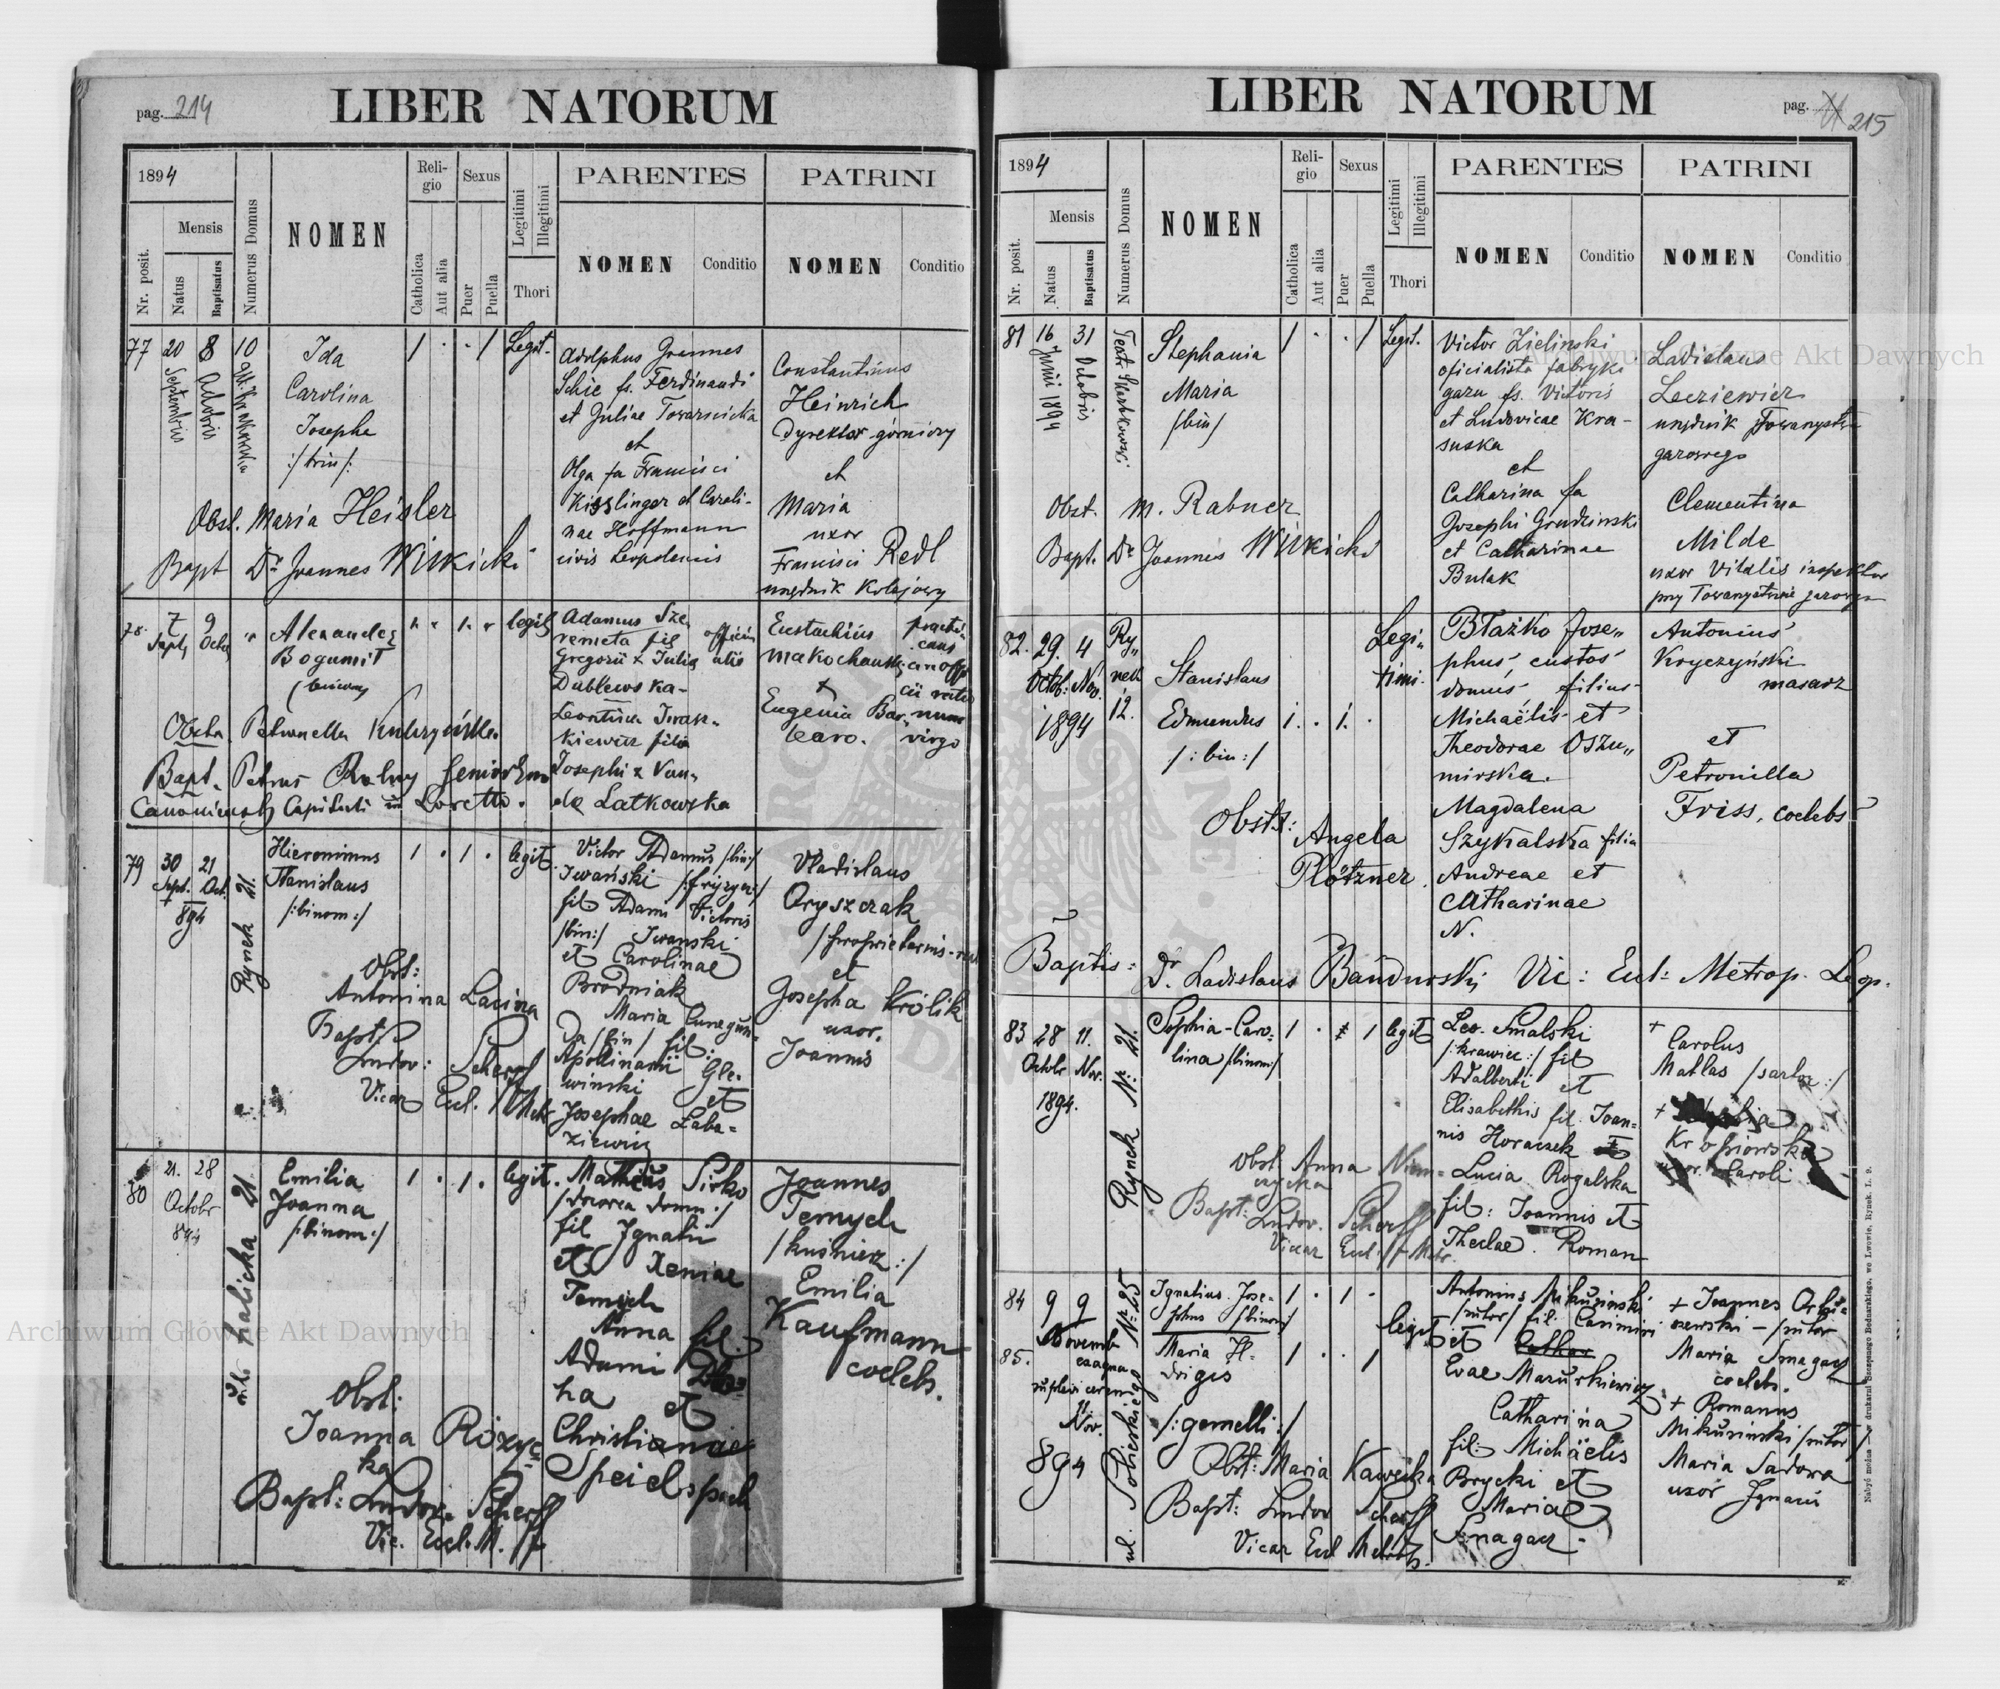 pag. 214
LIBER NATORUM
1894
Mensis
Nr. posit.
Natus
Baptisatus
Numerus Domus
NOMEN
Religio
Catholica
Aut alia
Sexus
Puer
Puella
Legitimi
Illegitimi
Thori
PARENTES
NOMEN
Conditio
PATRINI
NOMEN
Conditio
77
20
Septembris
8
Octobris
10
Ida
Carolina
Josepha
:/trin/:
Legit.
Adolphus Joannes
Schie fs. Ferdinandi
et Juliae Towarnicka
et
Olga fa Francisci
Kisslinger et Caroli-
nae Hoffmann
civis Leopoliensis
Constantinus
Heinrich
dyrektor górniczy
et
Maria
uxor
Francisci Redl
urzędnik kolejowy
Obst. Maria Heisler
Bapt Dr Joannes Wilkicki
78.
7
Sept,
9
Octb,
Alexander
Bogumił
legit,
Adamus Sze-
remeta fil
Gregorii & Julia
Dublewska-
Leontina Iwan-
kiewicz filia
Josephi & Van-
da Latkowska
Eustachius
Makochański
Eugenia Bar-
virgo
Obsta. Petronella
Bapt. Petrus
Canonicus Capituli in Loretto.
79
30
Sept.
21
Oct.
894
Rynek 21.
Hieronimus
Stanislaus
/:binom:/
legit.
Victor Adamus /bin:/
Iwański /:fryzyer:/
fil Adami Victoris
/bin:/ Iwanski
et Carolinae
Brodniak
Maria Cunegun-
da /bin/ fil:
Apollinarii Gle-
winski et
Josephae Laba-
ziewicz
Vladislaus
Oryszczak
et
Josepha Królik
uxor.
Joannis
Obst:
Antonina Lacina
Bapt:
Ludov: Scherff
Vicar Eccl. Metr
80
21.
28
Octobr
894
ul. halicka 21.
Emilia
Joanna
/:binom:/
legit.
Matheus Sirko
/dozorca domu:/
fil Ignatii
et Xeniae
Temych
Anna fil.
Adami
et
Christianae
Speidlspach
Joannes
Temych
/kuśnierz:/
Emilia
Kaufmann
coelebs.
Obst:
Joanna Różyc-
ka
Bapt: Ludov. Scherff
Vic. Eccl. M.
LIBER NATORUM
pag. 215
1894
Mensis
Nr. posit.
Natus
Baptisatus
Numerus Domus
NOMEN
Religio
Catholica
Aut alia
Sexus
Puer
Puella
Legitimi
Illegitimi
Thori
PARENTES
NOMEN
Conditio
PATRINI
NOMEN
Conditio
81
16
Junii 1894
31
Octobris
Teatr Skarbkowski
Stephania
Maria
/bin/
Legit.
Victor Zielinski
oficialista fabryki
gazu fs. Victoris
et Ludovicae Kra-
suska
et
Catharina fa
Josephi Grudzinski
et Catharinae
Bulak
Ladislaus
Leziewicz
urzędnik Towarzystwa
gazowego
Clementina
Milde
uxor Vitalis inspektor
przy Towarzystwie gazowym
Obst. M. Rabner
Bapt. Dr Joannes Wilkicki
82.
29.
Octb:
4
Nov.
1894
Rynek
12.
Stanislaus
Edmundus
/:bin:/
Legitimi.
Błażko Jose-
phus custos
domus filius
Michaëlis et
Theodorae Oszu-
mirska.
Magdalena
Szykalska filia
Andreae et
Catharinae
N.
Antonius
Kryczyński
masarz
et
Petronilla
Friss, coelebs
Obstx:
Angela
Plötzner.
Baptis: Dr. Ladislaus Bandurski Vic: Eccl: Metrop. Leop.
83
28
Octobr
11.
Nov.
1894.
Rynek Nr: 21.
Sophia-Caro-
lina /binom:/
legit
Leo Smalski
/:krawiec:/ fil
Adalberti et
Elisabethis fil. Joan-
nis Horaczek et
Lucia Rogalska
fil: Joannis et
Theclae Roman
+
Carolus
Matlas /sartor:/
+
Kropiowska
uxor. Caroli
Obst Anna
Bapt: Ludov. Scherff
Vicar Eccl. Metr.
84
9
9
Novemb
85.
11
Nov.
894
ul. Sobieskiego Nr 25
Ignatius Jose-
phus /binom/
Maria He-
drigis
/:gemelli:/
legit
Antonius Mikusinski
/sutor/ fil. Casimiri
et
Evae Mazurkiewicz
Catharina
fil: Michäelis
Brycki et
Mariae
Smagacz.
+ Joannes
- /sutor
Maria Smagacz
coelebs.
+ Romanus
Mikusinski /sutor/
Maria Sadowa
uxor Ignacii
Obst: Maria Kawecka
Bapt: Ludov Scherff
Vicar Eccl Metrop.
Nabyć można w drukarni Szczęsnego Bednarskiego, we Lwowie, Rynek. L. 9.
Archiwum Główne Akt Dawnych
Archiwum Główne Akt Dawnych